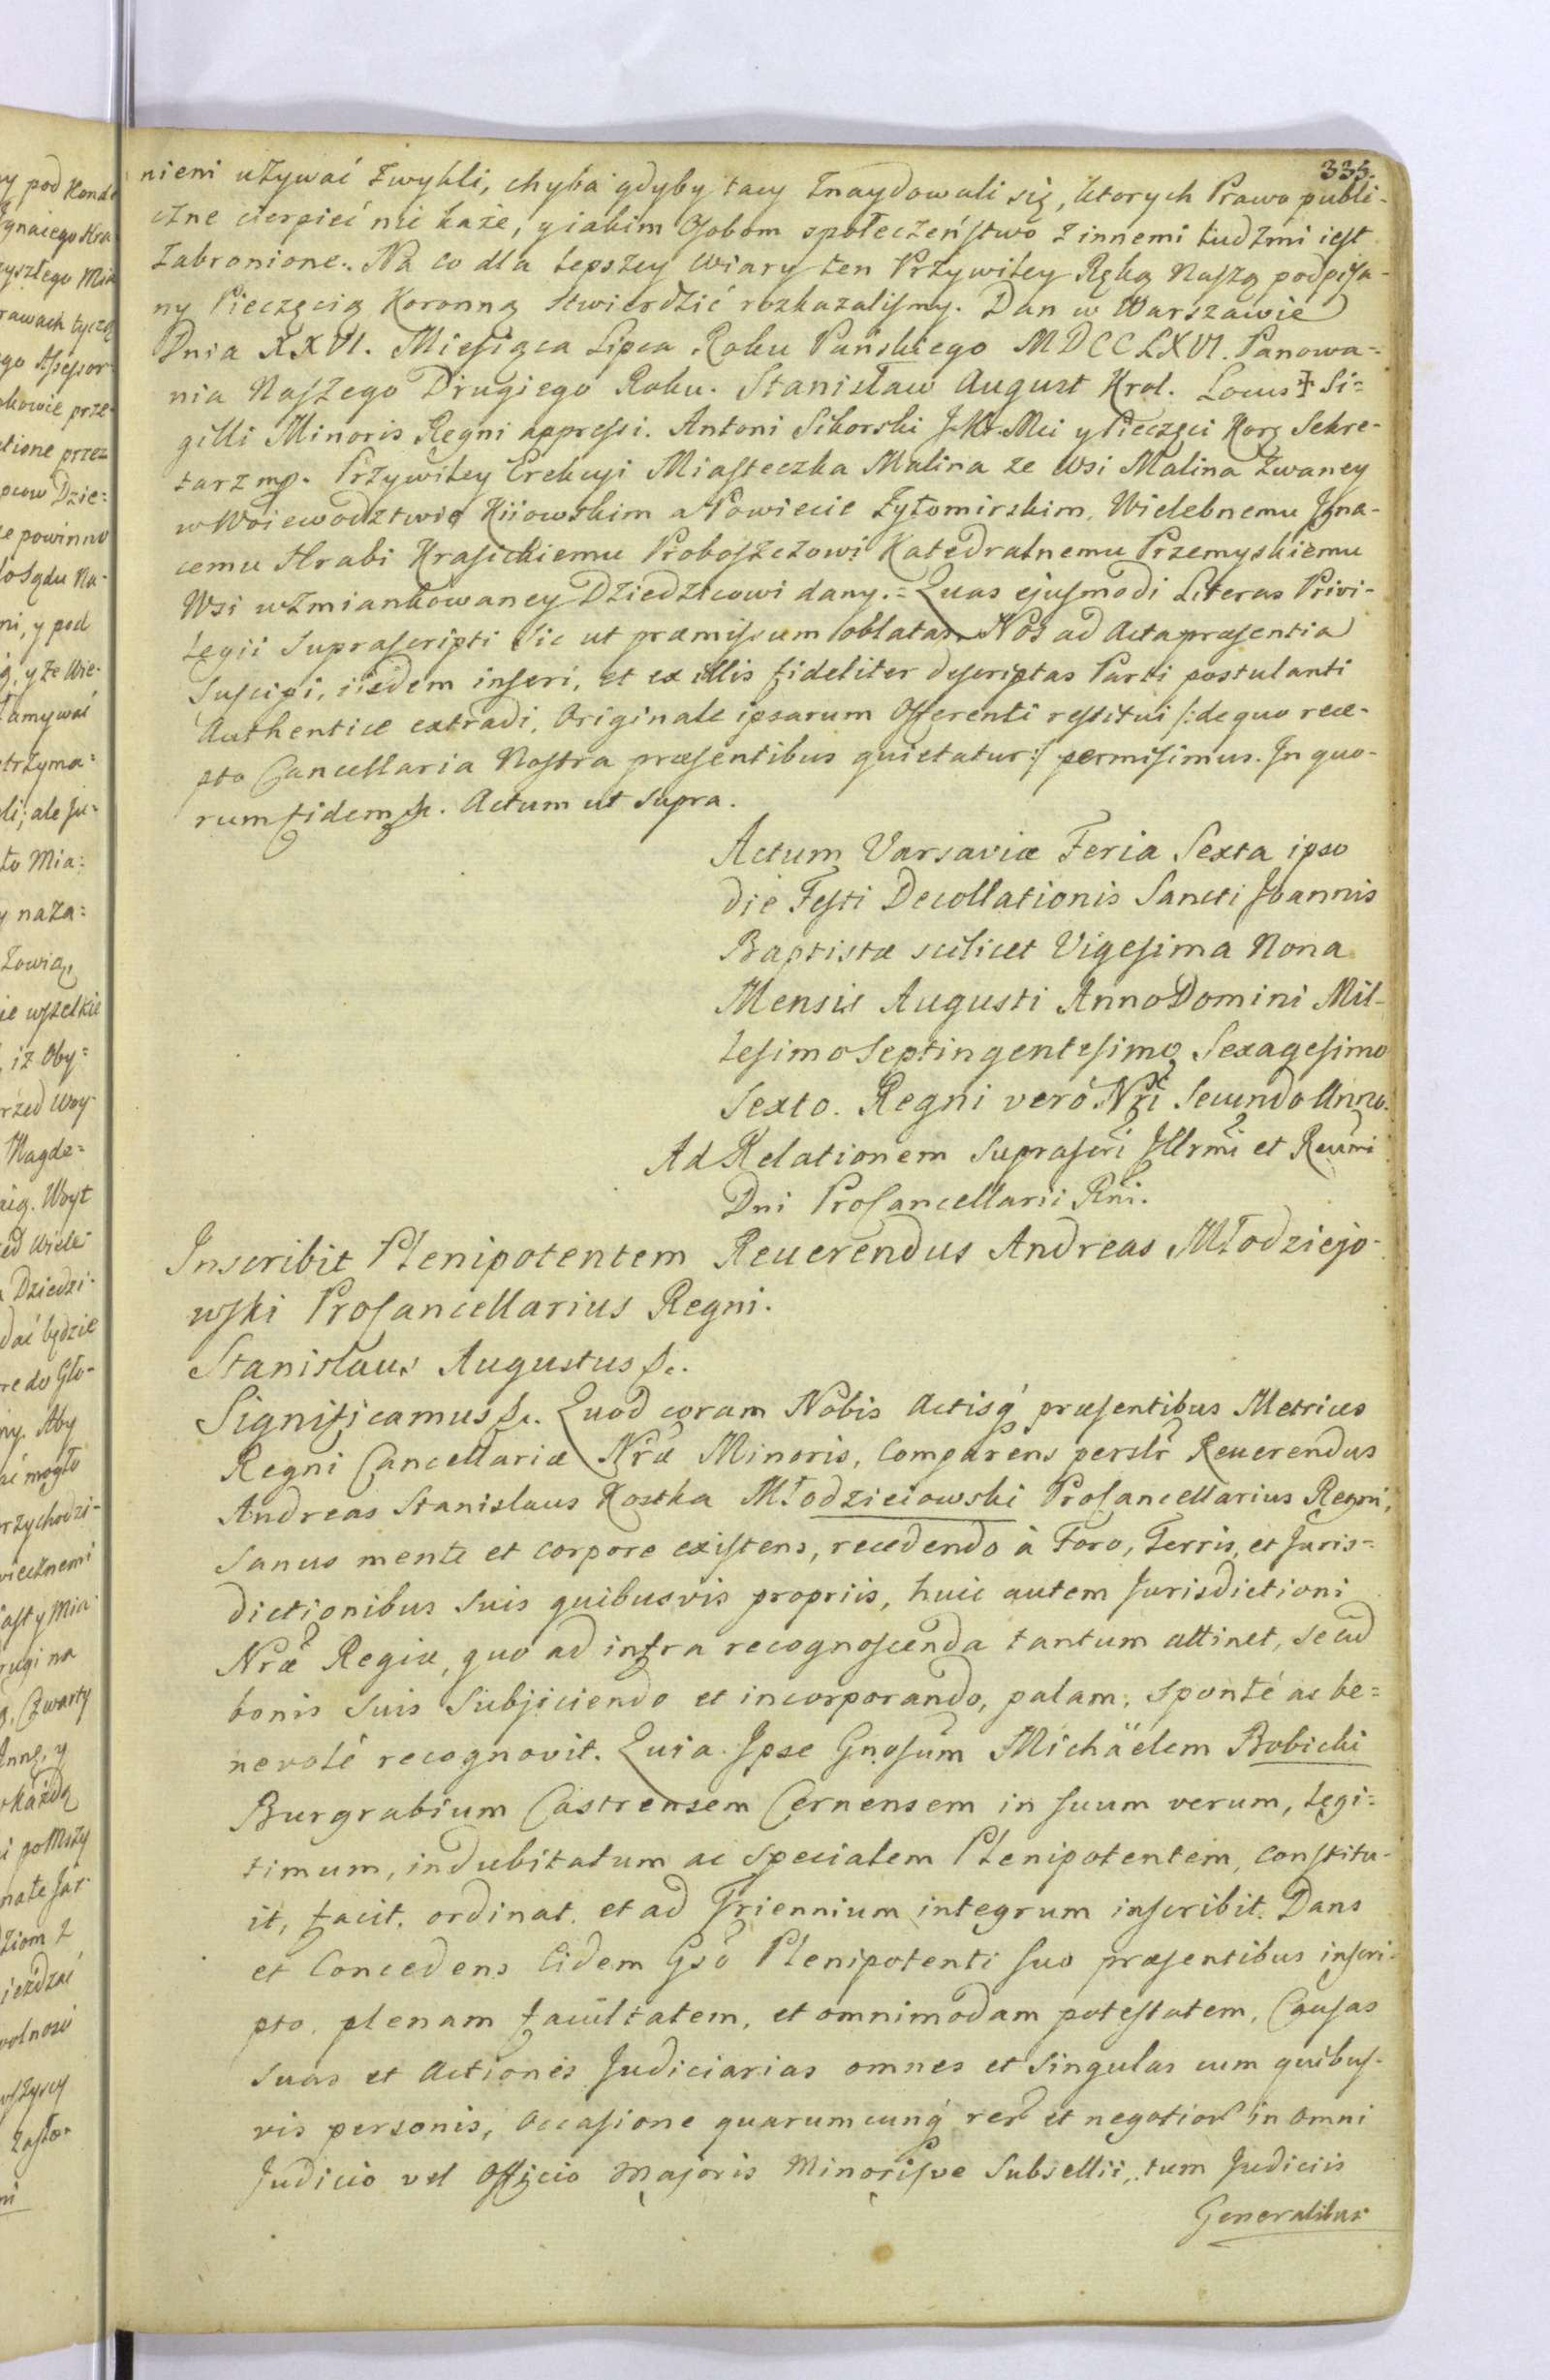 335.
nieni używać zwykli, chyba gdyby tacy znaydowali się, ktorych Prawo publi-
czne cierpieć nie każe, y iakim Osobom społeczeństwo z innemi ludźmi iest
zabronione. Na co dla lepszey wiary ten Przywiley Ręką Naszą podpisa-
ny Pieczęcią Koronną stwierdzić rozkazalismy. Dan w Warszawie
Dnia XXVI. Miesiąca Lipca Roku Pańskiego MDCCLXVI. Panowa=
nia Naszego Drugiego Roku. Stanisław August Krol. Locus Si=
gilli Minoris Regni appressi. Antoni Sikorski J.Kr.Mci y Pieczęci Kor. Sekre-
tarz mp. Przywiley Erekcyi Miasteczka Malina ze Wsi Malina zwaney
w Woiewodztwie Kiiowskim a Powiecie Żytomirskim, Wielebnemu Igna-
cemu Hrabi Krasickiemu Proboszczowi Katedralnemu Przemyskiemu
Wsi wzmiankowaney Dziedzicowi dany. = Quas ejusmodi Literas Privi-
legii suprascripti sic ut præmissum oblatas Nos ad Acta præsentia
suscipi, iisdem inseri, et ex illis fideliter descriptas Parti postulanti
Authentice extradi, Originale ipsarum Offerenti restitui /: de quo rece-
pto Cancellaria Nostra præsentibus quietatur :/ permisimus. In quo-
rum fidem &c. Actum ut supra.
Actum Varsaviæ Feria Sexta ipso
die Festi Decollationis Sancti Joannis
Baptistæ scilicet Vigesima Nona
Mensis Augusti Anno Domini Mil-
lesimo Septingentesimo Sexagesimo
Sexto. Regni verò Nri Secundo Anno.
Ad Relationem suprascri Illrmi et Reumi
Dni ProCancellarii Rni.
Inscribit Plenipotentem Reuerendus Andreas Młodziejo-
wski ProCancellarius Regni.
Stanislaus Augustus &c.
Significamus &c. Quod coram Nobis Actisq́ præsentibus Metrices
Regni Cancellariæ Nræ Minoris, Comparens perslr Reuerendus
Andreas Stanislaus Kostka Młodzieiowski ProCancellarius Regni,
sanus mente et corpore existens, recedendo à Foro, Terris, et Juris=
dictionibus suis quibusvis propriis, huic autem Jurisdictioni
Nræ Regiæ, quo ad infra recognoscenda tantum attinet, se cũ
bonis suis subjiciendo et incorporando, palam, sponté ac be=
nevolé recognovit. Quia Ipse Gnosum Michäelem Bobicki
Burgrabium Castrensem Cernensem in suum verum, legi=
timum, indubitatum ac specialem Plenipotentem, constitu-
it, facit, ordinat, et ad Triennium integrum inscribit. Dans
et Concedens Eidem Gso Plenipotenti suo præsentibus inscri-
pto, plenam facultatem, et omnimodam potestatem, Causas
suas et Actiones Judiciarias omnes et singulas cum quibus-
vis personis, occasione quarumcunq́ rer et negotior in omni
Judicio vel Officio Majoris Minorisve Subsellii, tum Judiciis
Generalibus